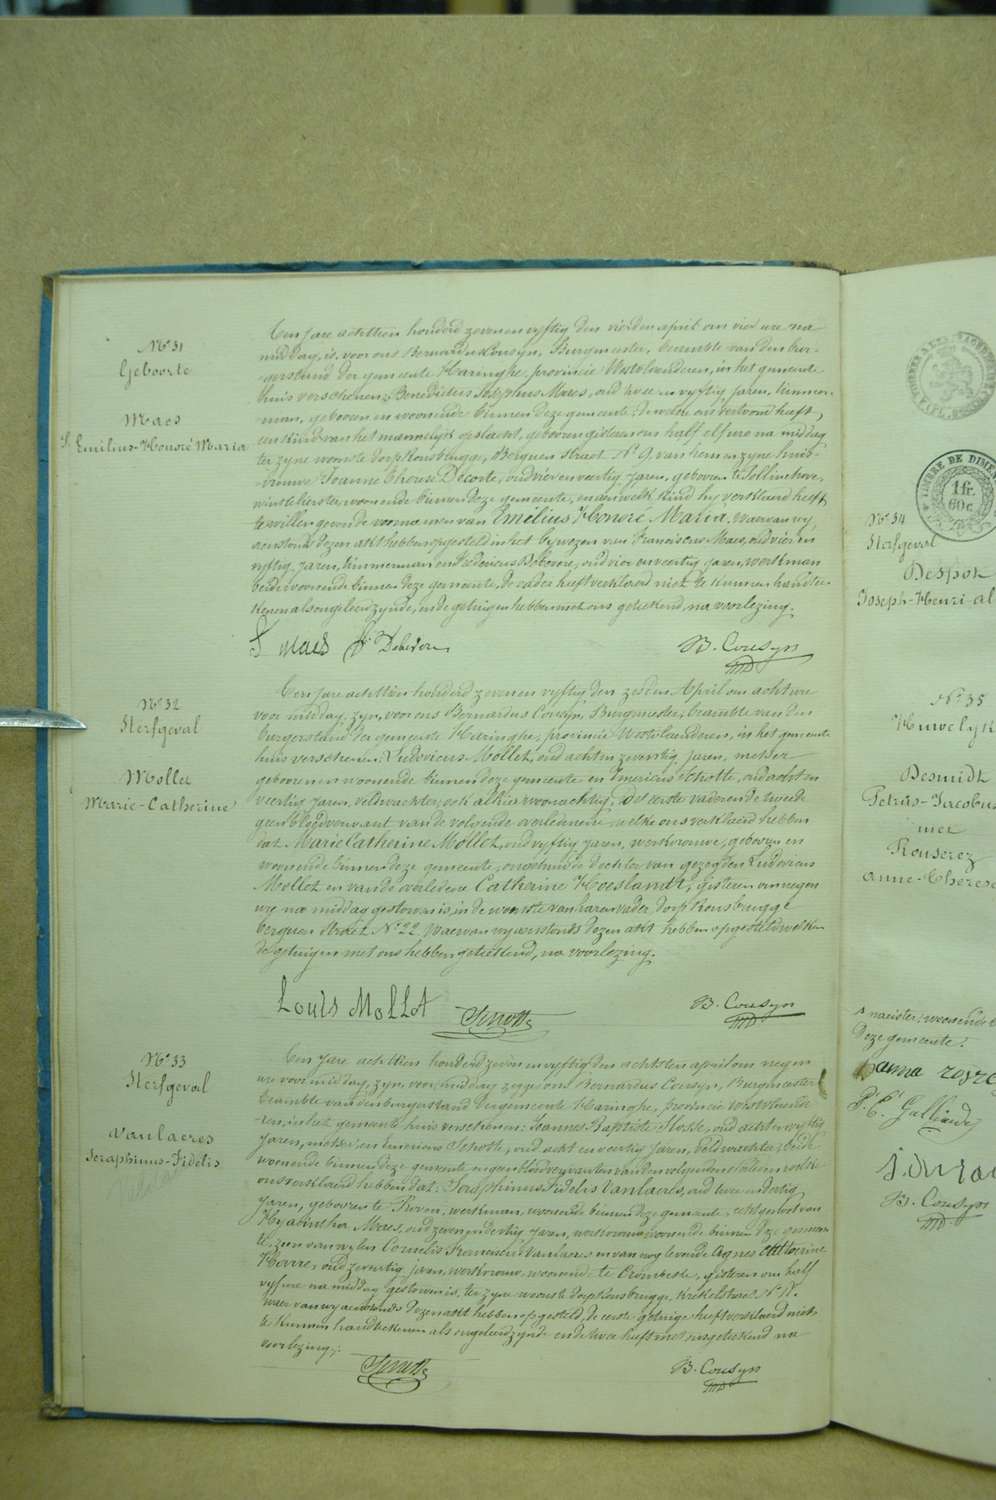 N° 31
Geboorte
Maes
Emilius-Honoré Maria
Een jare achttien honderd zeven en vyftig den vierden april om vier ure na
middag, is, voor ons Bernardus Cousyn, Burgmeester, beambte van den bur-
gerstand der gemeente Haringhe, provincie Westvlaenderen, in het gemeente
huis verschenen: Benedictus Josephus Maes, oud twee en vyftig jaren, timmer-
man, geboren en woonende binnen deze gemeente, dewelke ons vertoond heeft
een kind van het mannelyk geslacht, geboren gisteren om half elf ure na middag
ter zyne woonste dorp Rousbrugge, Berguen straet N° 9, van hem en zyne huis-
vrouwe Joanne Therese Decorte, oud vier en veertig jaren, geboren te Pollinchove,
woonende binnen deze gemeente, en aen welk kind hy verklaerd heeft
te willen geven de voornamen van Emilius Honoré Maria, waervan wy,
aenstonds dezen akt hebben opgesteld in het bywezen van Franciscus Maes, oud vier en
vyftig jaren, timmerman en Fredericus Debevere, oud vier en veertig jaren, werkman
beide woonende binnen deze gemeente, de vader heeft verklaerd niet te kunnen handtee-
kenen als ongeleerd zynde, en de getuigen hebben met ons geteekend, na voorlezing.
F maes F. Debevere
B. Cousyn
N° 32
Sterfgeval
Mollet
Marie-Catherine
Een jare achttien honderd zeven en vyftig den zesden April om acht ure
voor middag, zyn, voor ons Bernardus Cousyn, Burgmeester, beambte van den
burgerstand der gemeente Haringhe, provincie Westvlaenderen, in het gemeente
huis verschenen: Ludovicus Mollet, oud acht en zeventig jaren, metser
geboren en woonende binnen deze gemeente en Emericus Schotte, oud acht en
veertig jaren, veldwachter, ook alhier woonachtig, de eerste vader en de tweede
geen bloedverwant van de volgende overledene welke ons verklaerd hebben
dat Marie Catherine Mollet, oud vyftig jaren, werkvrouwe, geboren en
woonende binnen deze gemeente, ongehuwde dochter van gezegden Ludovicus
Mollet en van de overledene Catherine Hoeslandt, gisteren om negen
ure na middag gestorven is, in de woonste van haren vader, dorp Rousbrugge
berguen straet N° 22, waervan wy aenstonds dezen akt hebben opgesteld welken
de getuigen met ons hebben geteekend, na voorlezing.
Louis Mollet
Schotte
B. Cousyn
N° 33
Sterfgeval
Vanlaeres
Seraphinus-Fidelis
Een jare achttien honderd zeven en vyftig den achtsten april om negen
ure voor middag, zyn, voor middag zegge ons Bernardus Cousyn, Burgmeester
beambte van den burgerstand der gemeente Haringhe, provincie Westvlaende-
ren, in het gemeente huis verschenen: Joannes Baptiste, oud acht en vyftig
jaren, en Emericus Schotte, oud acht en veertig jaren, veldwachter, beide
woonende binnen deze gemeente en geen bloedverwanten van den volgenden overledenen welke
ons verklaerd hebben dat: Seraphinus Fidelis Vanlaeres, oud twee en dertig
jaren, geboren te Proven, werkman, woonende binnen deze gemeente, echtgenoot van
Hyacintha Maes, oud zeven en dertig jaren, werkvrouwe woonende binnen deze gemeen-
te, zoon van wylen Cornelis Franciscus Vanlaeres en van nog levende Agnes Catherine
Havre, oud zeventig jaren, werkvrouwe, woonende te Crombeke, gisteren om half
vyf ure na middag gestorven is, ter zyne woonste dorp Rousbrugge, Krekelstraet N° 17.
waer van wy aenstonds dezen akt hebben opgesteld, de eerste getuige heeft verklaerd niet
te kunnen handteekenen als ongeleerd zynde en de twee heeft met ons geteekend na
voorlezing.
Schotte
B. Cousyn
TIMBRE DE DIMEN
1 fr.
60 c.
N° 34
Sterfgeval
Despoh
Joseph-Henri-al
N° 35
Huwelyk
Desmidt
Petrus-Jacobus
met
Rouserez
anne-Therese
deze gemeente.
B. Cousyn